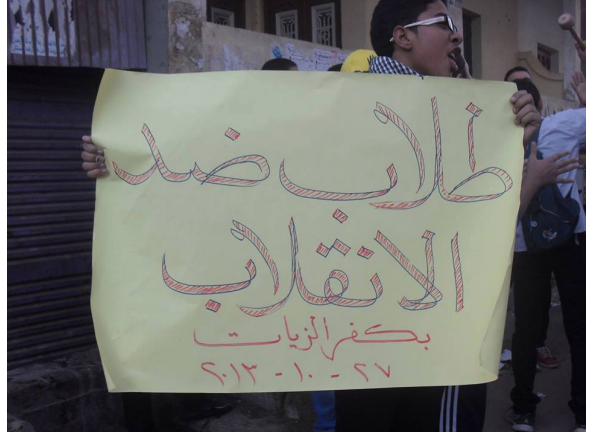 طلاب ضد
الانقلاب
بكفر الزيات
٢٧ - ١٠ - ٢٠١٣